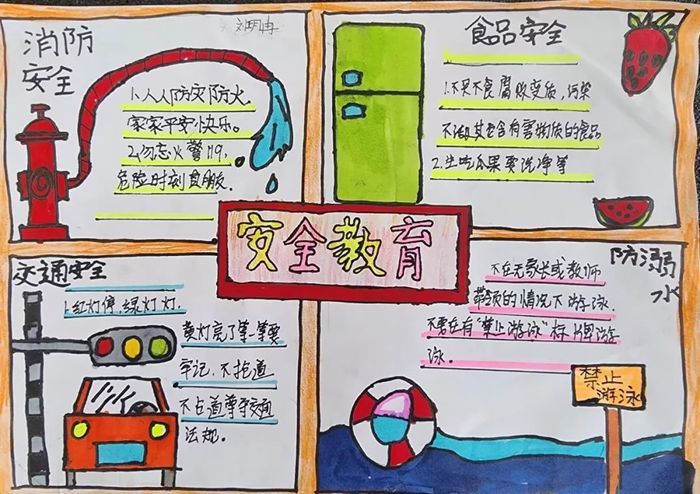 刘玥冉
消防
安全
1.人人防灾防火,
家家平安快乐。
2.勿忘火警119,
危险时刻
食品安全
1.不买不食腐败变质,污染
不洁其它含有害物质的食品
2.生吃瓜果要洗净等
安全教育
交通安全
1.红灯停,绿灯灯,
黄灯亮了等一等要
牢记,不抢道
不占道尊守交通
法规。
防溺
水
不在无家长或教师
带领的情况下游泳
不要在有“禁止游泳”标牌游
泳。
禁止
游泳